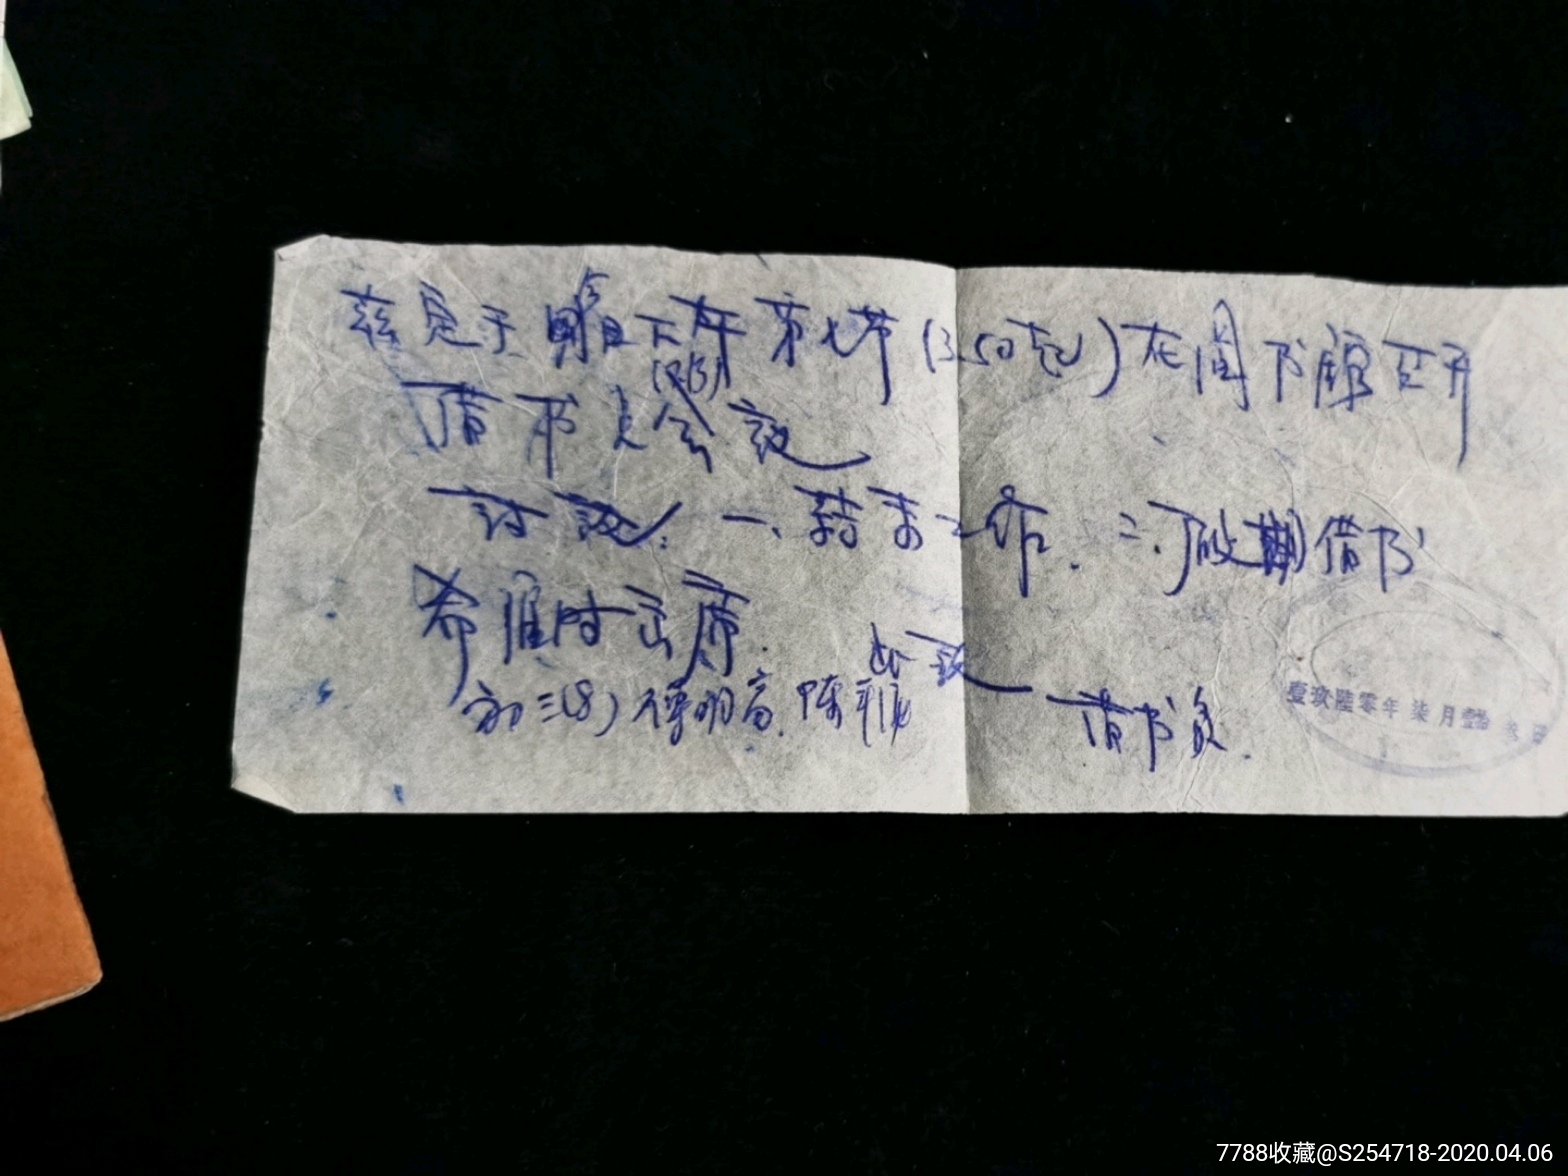 兹定于明日下午第七节(3.50起)在图书馆召开
借书员会议
讨论:一、结束工作.二.假期借书
希准时出席.
此致
初三(8)傅明高.陈
借书员.
壹玖陆零年柒月
7788收藏@S254718-2020.04.06